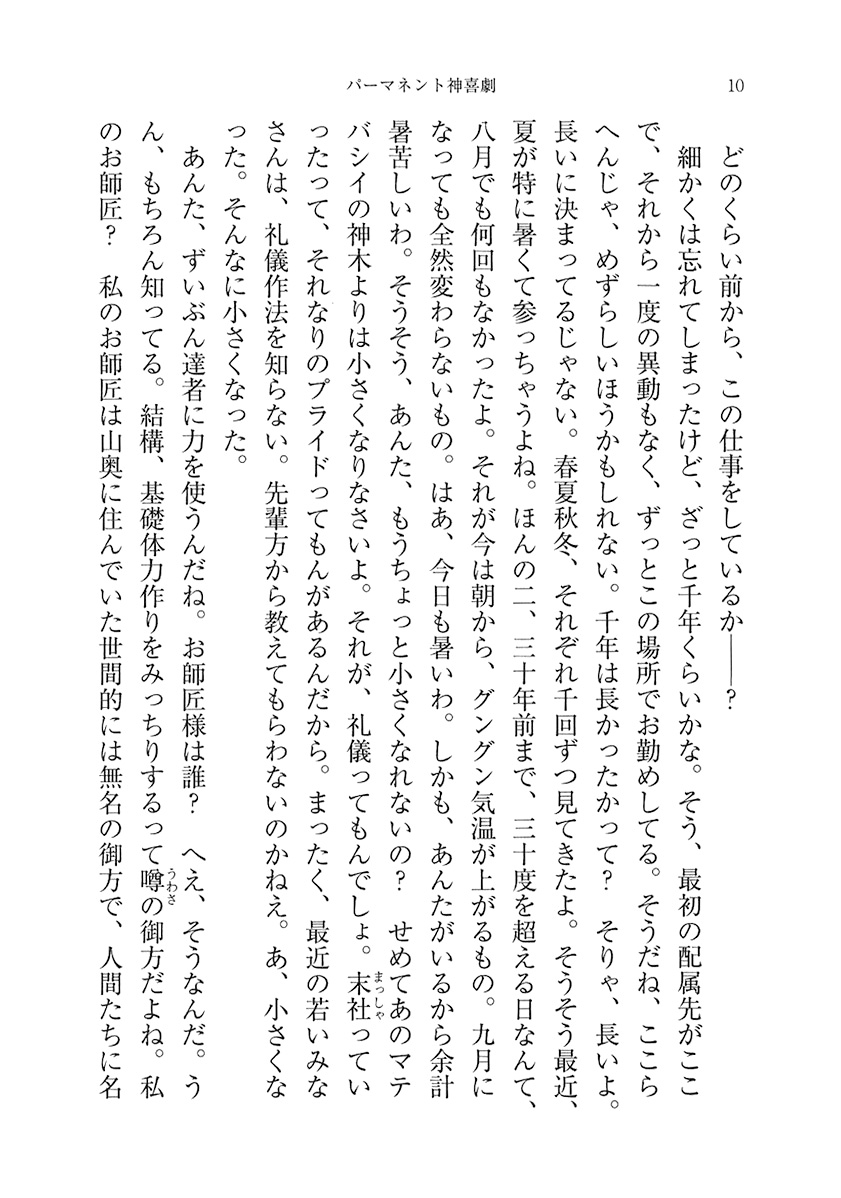 パーマネント神喜劇
10
どのくらい前から、この仕事をしているか――?
細かくは忘れてしまったけど、ざっと千年くらいかな。そう、最初の配属先がここ
で、それから一度の異動もなく、ずっとこの場所でお勤めしてる。そうだね、ここら
へんじゃ、めずらしいほうかもしれない。千年は長かったかって? そりゃ、長いよ。
長いに決まってるじゃない。春夏秋冬、それぞれ千回ずつ見てきたよ。そうそう最近、
夏が特に暑くて参っちゃうよね。ほんの二、三十年前まで、三十度を超える日なんて、
八月でも何回もなかったよ。それが今は朝から、グングン気温が上がるもの。九月に
なっても全然変わらないもの。はあ、今日も暑いわ。しかも、あんたがいるから余計
暑苦しいわ。そうそう、あんた、もうちょっと小さくなれないの? せめてあのマテ
バシイの神木よりは小さくなりなさいよ。それが、礼儀ってもんでしょ。末社ってい
まっしゃ
ったって、それなりのプライドってもんがあるんだから。まったく、最近の若いみな
さんは、礼儀作法を知らない。先輩方から教えてもらわないのかねえ。あ、小さくな
った。そんなに小さくなった。
あんた、ずいぶん達者に力を使うんだね。お師匠様は誰? へえ、そうなんだ。う
ん、もちろん知ってる。結構、基礎体力作りをみっちりするって噂の御方だよね。私
うわさ
のお師匠? 私のお師匠は山奥に住んでいた世間的には無名の御方で、人間たちに名